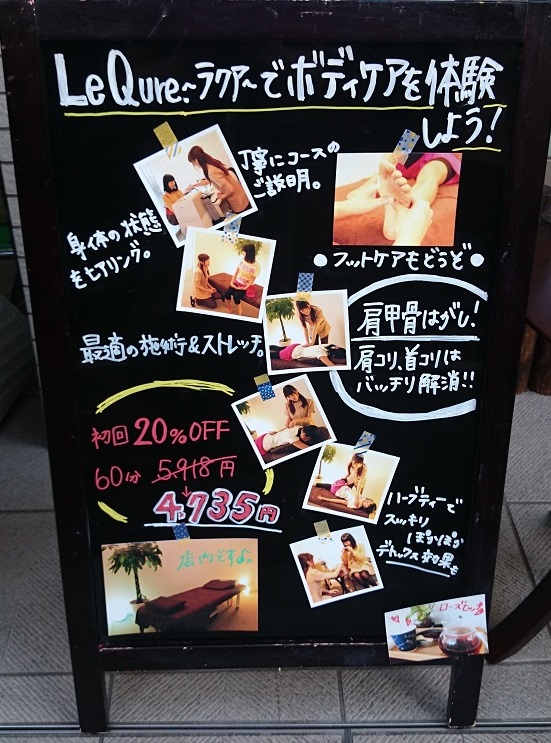 Le Qure.~ラクア~でボディケアを体験
しよう!
丁寧にコースの
ご説明。
身体の状態
をヒアリング。
●フットケアもどうぞ●
肩甲骨はがし!
肩コリ、首コリは
バッチリ解消!!
最適の施術&ストレッチ。
初回20%OFF
60分 5.918円
4.735円
ハーブティーで
スッキリ
ぽかぽか
デトックス効果も
店内ですよ。
ローズヒップ